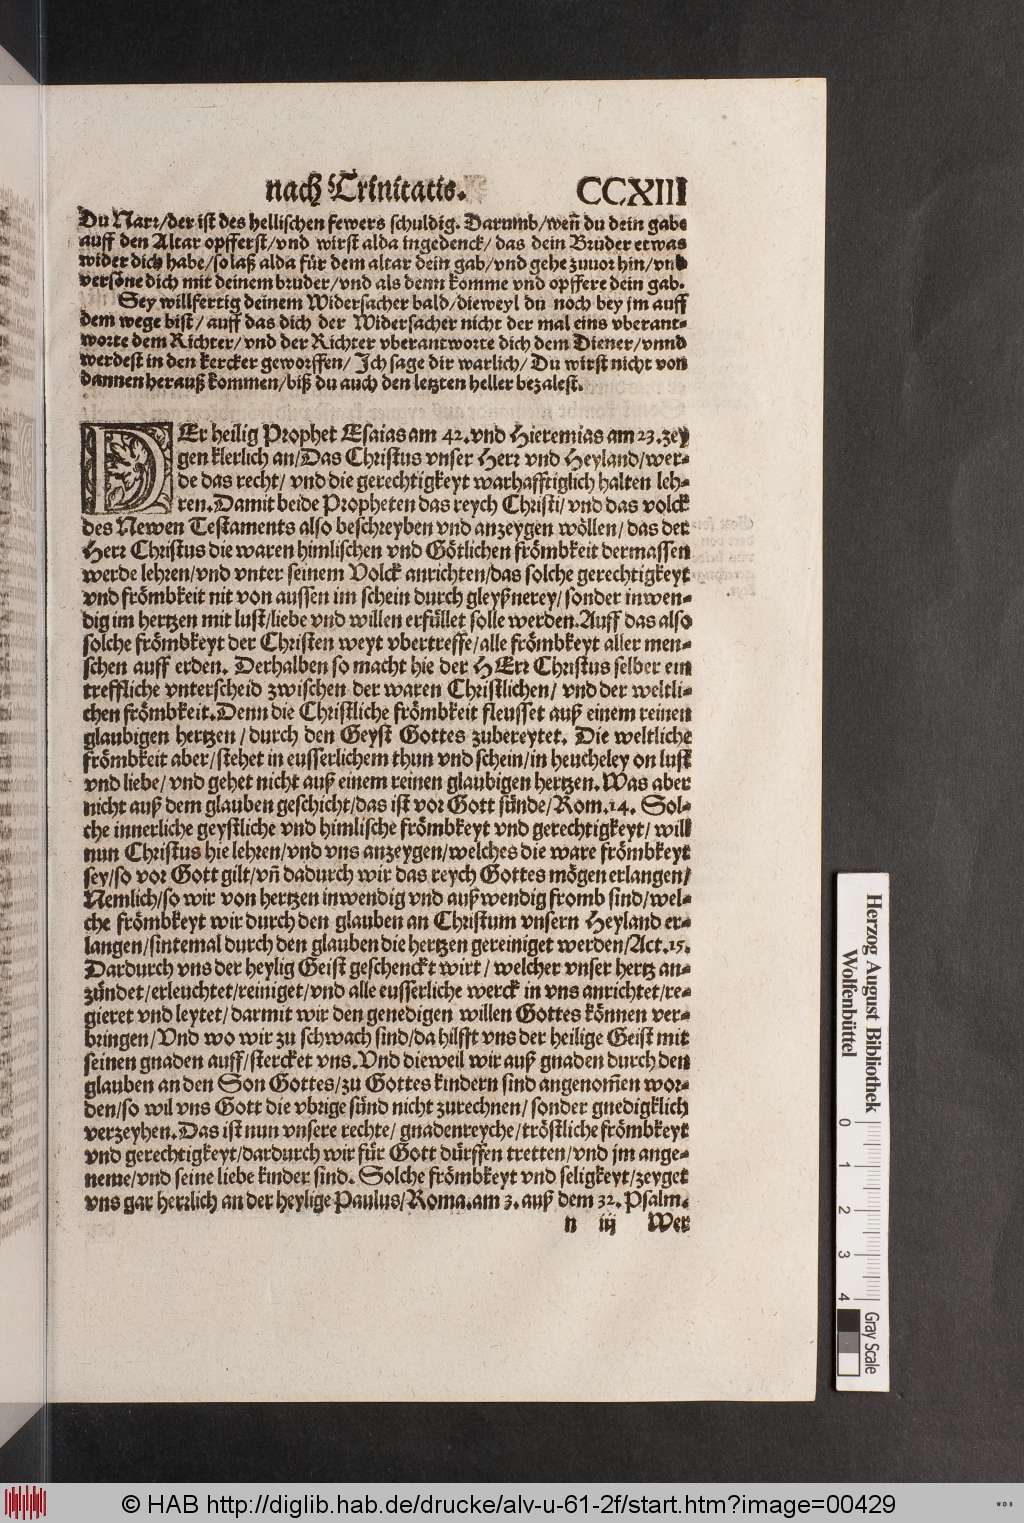 nach Trinitatis. CCXIII
Du Narr/der ist des hellischen fewers schuldig. Darumb/weñ du dein gabe
auff den Altar opfferst/vnd wirst alda ingedenck/ das dein Bruder etwas
wider dich habe/so laß alda für dem altar dein gab/vnd gehe zuuor hin/vnd
versöne dich mit deinem bruder/vnd als denn komme vnd opffere dein gab.
Sey willfertig deinem Widersacher bald/dieweyl du noch bey jm auff
dem wege bist/ auff das dich der Widersacher nicht der mal eins vberant-
worte dem Richter/ vnd der Richter vberantworte dich dem Diener/vnnd
werdest in den kercker geworffen/ Jch sage dir warlich/ Du wirst nicht von
dannen herauß kommen/biß du auch den letzten heller bezalest.
DEr heilig Prophet Esaias am 42. vnd Hieremias am 23. zey
gen klerlich an/Das Christus vnser Herr vnd Heyland/wer-
de das recht/ vnd die gerechtigkeyt warhafftiglich halten leh-
ren. Damit beide Propheten das reych Christi/ vnd das volck
des Newen Testaments also beschreyben vnd anzeygen wöllen/das der
Herr Christus die waren himlischen vnd Götlichen frömbkeit dermassen
werde lehren/vnd vnter seinem Volck anrichten/das solche gerechtigkeyt
vnd frömbkeit nit von aussen im schein durch gleyßnerey/sonder inwen-
dig im hertzen mit lust/liebe vnd willen erfüllet solle werden. Auff das also
solche frömbkeyt der Christen weyt vbertreffe/alle frömbkeyt aller men-
schen auff erden. Derhalben so macht hie der HErr Christus selber ein
treffliche vnterscheid zwischen der waren Christlichen/ vnd der weltli-
chen frömbkeit. Denn die Christliche frömbkeit fleusset auß einem reinen
glaubigen hertzen/ durch den Geyst Gottes zubereytet. Die weltliche
frömbkeit aber/stehet in eusserlichem thun vnd schein/in heucheley on lust
vnd liebe/vnd gehet nicht auß einem reinen glaubigen hertzen. Was aber
nicht auß dem glauben geschicht/das ist vor Gott sünde/Rom. 14. Sol-
che innerliche geystliche vnd himlische frömbkeyt vnd gerechtigkeyt/ will
nun Christus hie lehren/vnd vns anzeygen/welches die ware frömbkeyt
sey/so vor Gott gilt/vñ dadurch wir das reych Gottes mögen erlangen/
Nemlich/so wir von hertzen inwendig vnd außwendig fromb sind/wel-
che frömbkeyt wir durch den glauben an Christum vnsern Heyland er-
langen/sintemal durch den glauben die hertzen gereiniget werden/Act. 15.
Dardurch vns der heylig Geist geschenckt wirt/ welcher vnser hertz an-
zündet/erleuchtet/reiniget/vnd alle eusserliche werck in vns anrichtet/re-
gieret vnd leytet/darmit wir den genedigen willen Gottes können ver-
bringen/Vnd wo wir zu schwach sind/da hilfft vns der heilige Geist mit
seinen gnaden auff/stercket vns. Vnd dieweil wir auß gnaden durch den
glauben an den Son Gottes/zu Gottes kindern sind angenom̃en wor-
den/so wil vns Gott die vbrige sünd nicht zurechnen/ sonder gnedigklich
verzeyhen. Das ist nun vnsere rechte/ gnadenreyche/tröstliche frömbkeyt
vnd gerechtigkeyt/dardurch wir für Gott dürffen tretten/vnd jm ange-
neme/vnd seine liebe kinder sind. Solche frömbkeyt vnd seligkeyt/zeyget
vns gar herrlich an der heylige Paulus/Roma. am 3. auß dem 32. Psalm.
n iij Wer
Herzog August Bibliothek
Wolfenbüttel
0 1 2 3 4
Gray Scale
© HAB http://diglib.hab.de/drucke/alv-u-61-2f/start.htm?image=00429